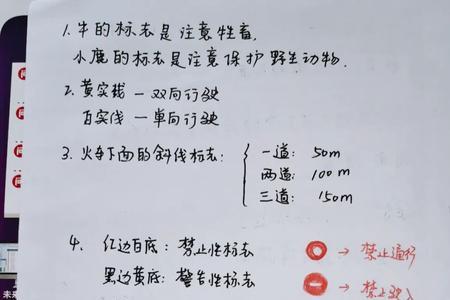 1. 牛的标志是注意牲畜,
小鹿的标志是注意保护野生动物.
2. 黄实线 — 双向行驶
白实线 — 单向行驶
3. 火车下面的斜线标志: { 一道: 50m
两道: 100m
三道: 150m
4. 红边白底: 禁止性标志 → 禁止通行
黑边黄底: 警告性标志 → 禁止驶入